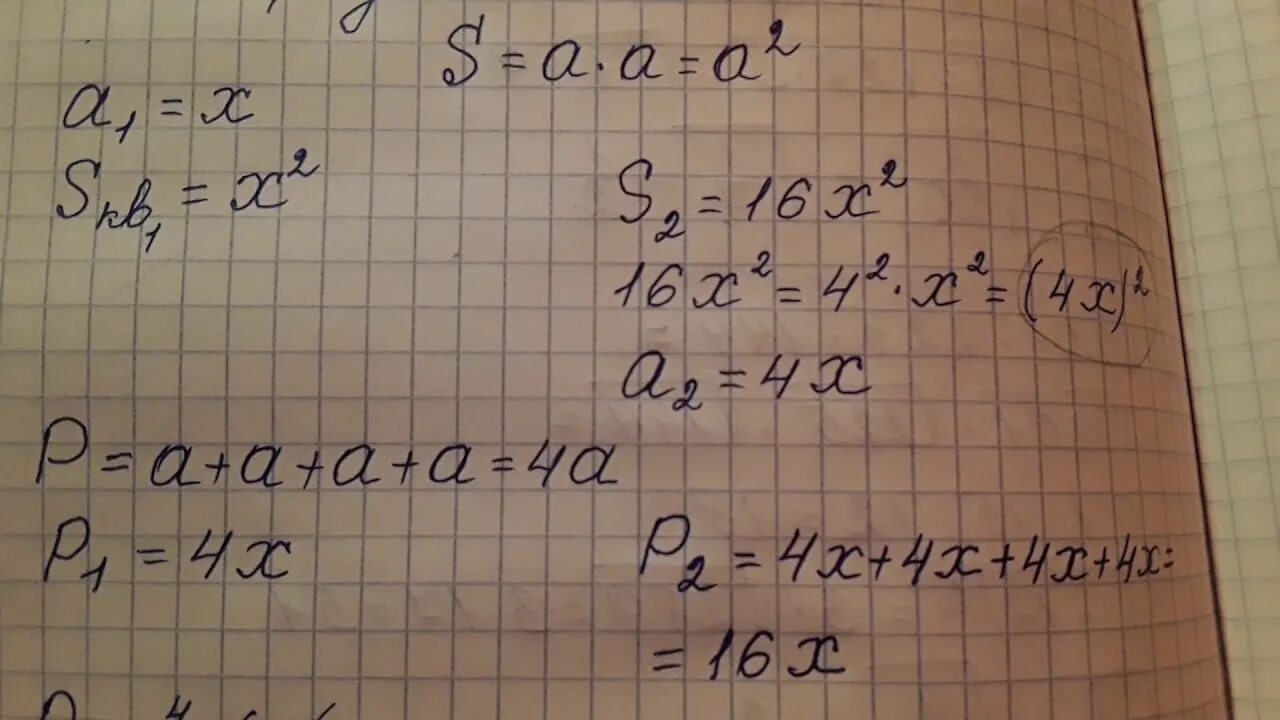 S = a · a = a²
a₁ = x
Sкв₁ = x²
S₂ = 16x²
16x² = 4² · x² = (4x)²
a₂ = 4x
P = a + a + a + a = 4a
P₁ = 4x
P₂ = 4x + 4x + 4x + 4x =
= 16x